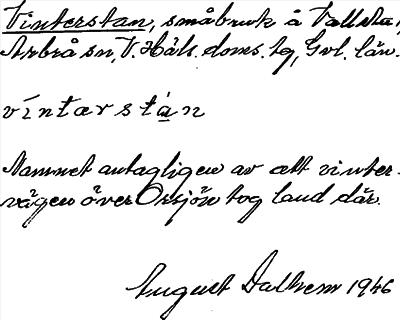 Vinterstan, småbruk å Vallsta,
Arbrå sn, V. Häls. doms. tg, Gvl. län.
vìntærstàn
Namnet antagligen av att vinter-
vägen över Orsjön tog land där.
August Dalhem 1946